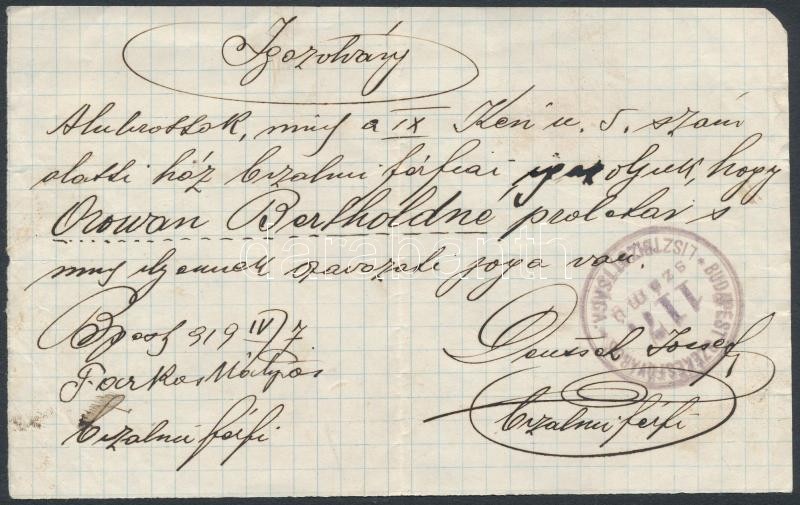 Igazolvány
Alulirottak, mint a IX Kén u. 5. szám
alatti ház bizalmi férfiai igazoljuk, hogy
Orowan Bertholdné proletár s
mint ilyennek szavazati joga van.
Bpest 919 IV/7
Farkas Mátyás
bizalmi férfi
Deutsch József
bizalmi férfi
BUDAPEST SZÉKESFŐVÁROSI LISZTBIZOTTSÁGA
117
számú
darabanth